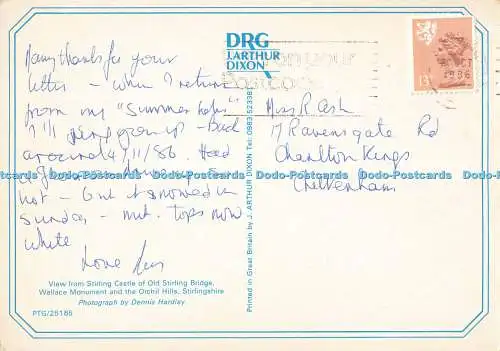 Many thanks for your
letter - when I return
from my "Summer hols"
I'll ring you up - Back
around 4/11/86. Had
a
not - but it snowed in
Sunday - mt. tops now
white
Love
DRG
J.ARTHUR
DIXON
your
Postcode
OCT
1986
13
Miss R Ash
17 Ravensgate Rd
Charlton Kings
Cheltenham
Printed in Great Britain by J. ARTHUR DIXON Tel: 0983 523381
View from Stirling Castle of Old Stirling Bridge,
Wallace Monument and the Orchil Hills, Stirlingshire
Photograph by Dennis Hardley
PTG/25165
Dodo-Postcards Dodo-Postcards Dodo-Postcards Dodo-Postcards Dodo-Postcards